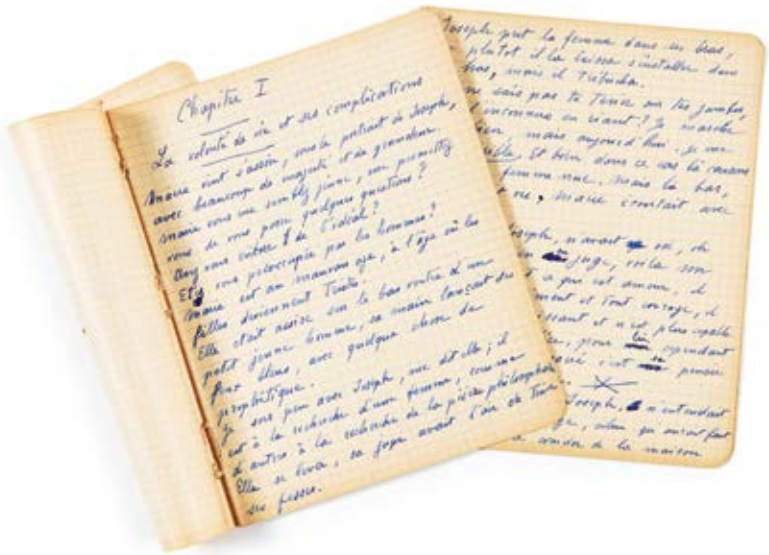 Chapitre I
La volonté de vie et ses complications
Marie vint s'asseoir, sous le portrait de Joseph,
avec beaucoup de majesté et de grandeur.
Marie vous me semblez jeune, me permettez
vous de vous poser quelques questions?
Avez vous entrevu de l'idéal?
Et vous préoccupée par les hommes?
Marie est au mauvais age, à l'âge où les
filles deviennent Tristes.
Elle était assise sur le bas ventre d'un
petit jeune homme, sa main lançait des
feux bleus, avec quelque chose de
prophétique.
Je sors peu avec Joseph, me dit elle; il
est à la recherche d'une femme, comme
d'autres à la recherche de la pierre philosophale
Elle se leva, sa jupe avait l'air de Tenir
ses fesses.
Joseph prit la femme dans ses bras,
plutot il la laissa s'installer dans
bras, mais il Trébucha.
ne sais pas te Tenir sur tes jambes,
l'inconnue en riant? Je marche
bien, mais aujourd'hui je me
Et bien dans ce cas là comme
femme nue. Mais là bas,
nue, Marie comptait avec
Joseph, n'avait osé, oh
juge, voilà son
a qui est amour, il
ment et Tout courage, il
issant et n'est plus capable
pour cependant
c'est pensée
Joseph, n'entendant
alors qui aurait fait
de la maison